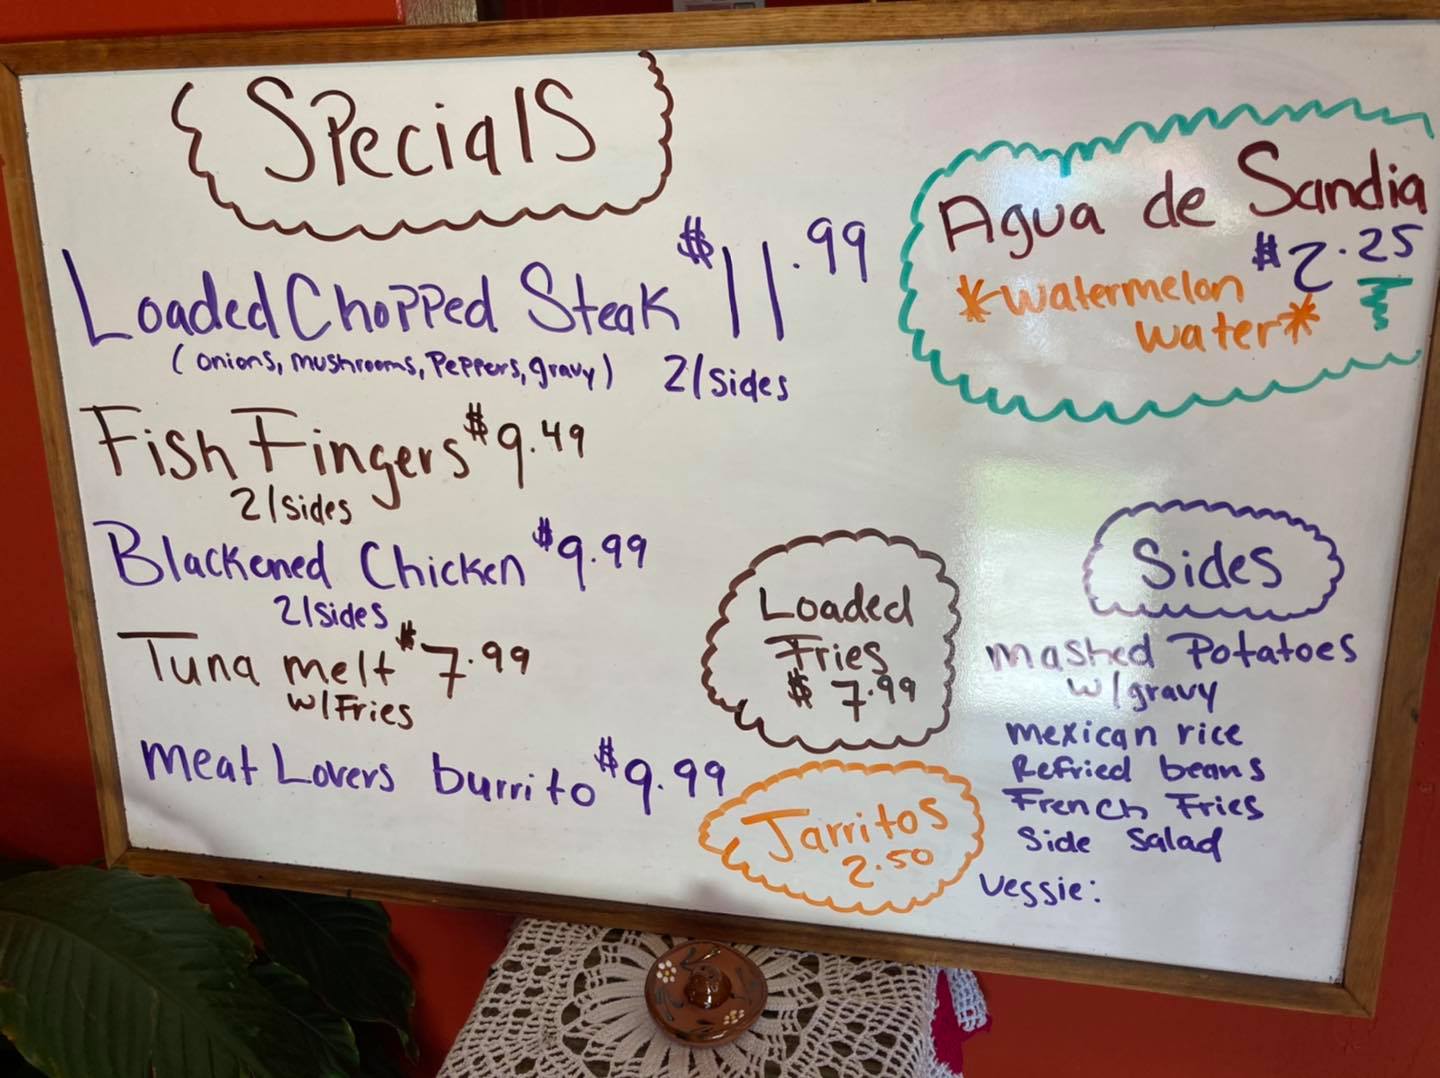 Specials
Loaded Chopped Steak $11.99
(onions, mushrooms, Peppers, gravy) 2/sides
Fish Fingers $9.49
2/sides
Blackened Chicken $9.99
2/sides
Tuna melt $7.99
w/Fries
meat Lovers burrito $9.99
Agua de Sandia
$2.25
*watermelon
water*
Loaded
Fries
$7.99
Jarritos
2.50
Sides
mashed Potatoes
w/gravy
mexican rice
Refried beans
French Fries
Side Salad
Vessie: